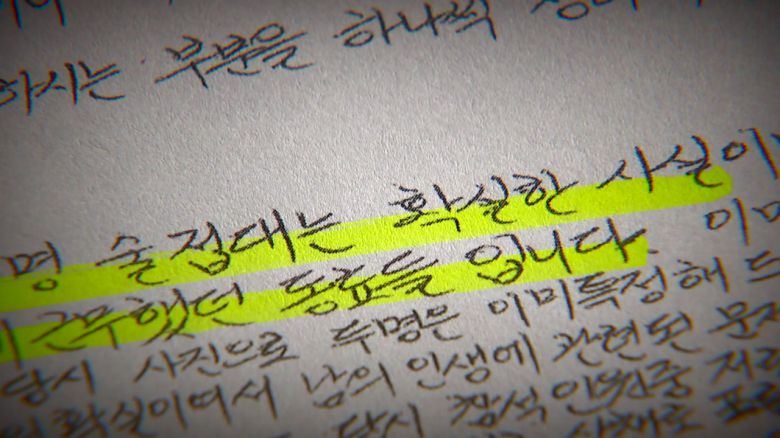 하시는 부분을 하나씩
명 술접대는 확실한 사실이
근무했던 동료들 입니다. 이미
당시 사진으로 두명은 이미특정해 드
확실이여서 남의 인생에 관련된 문
당시 참석 인원중 저